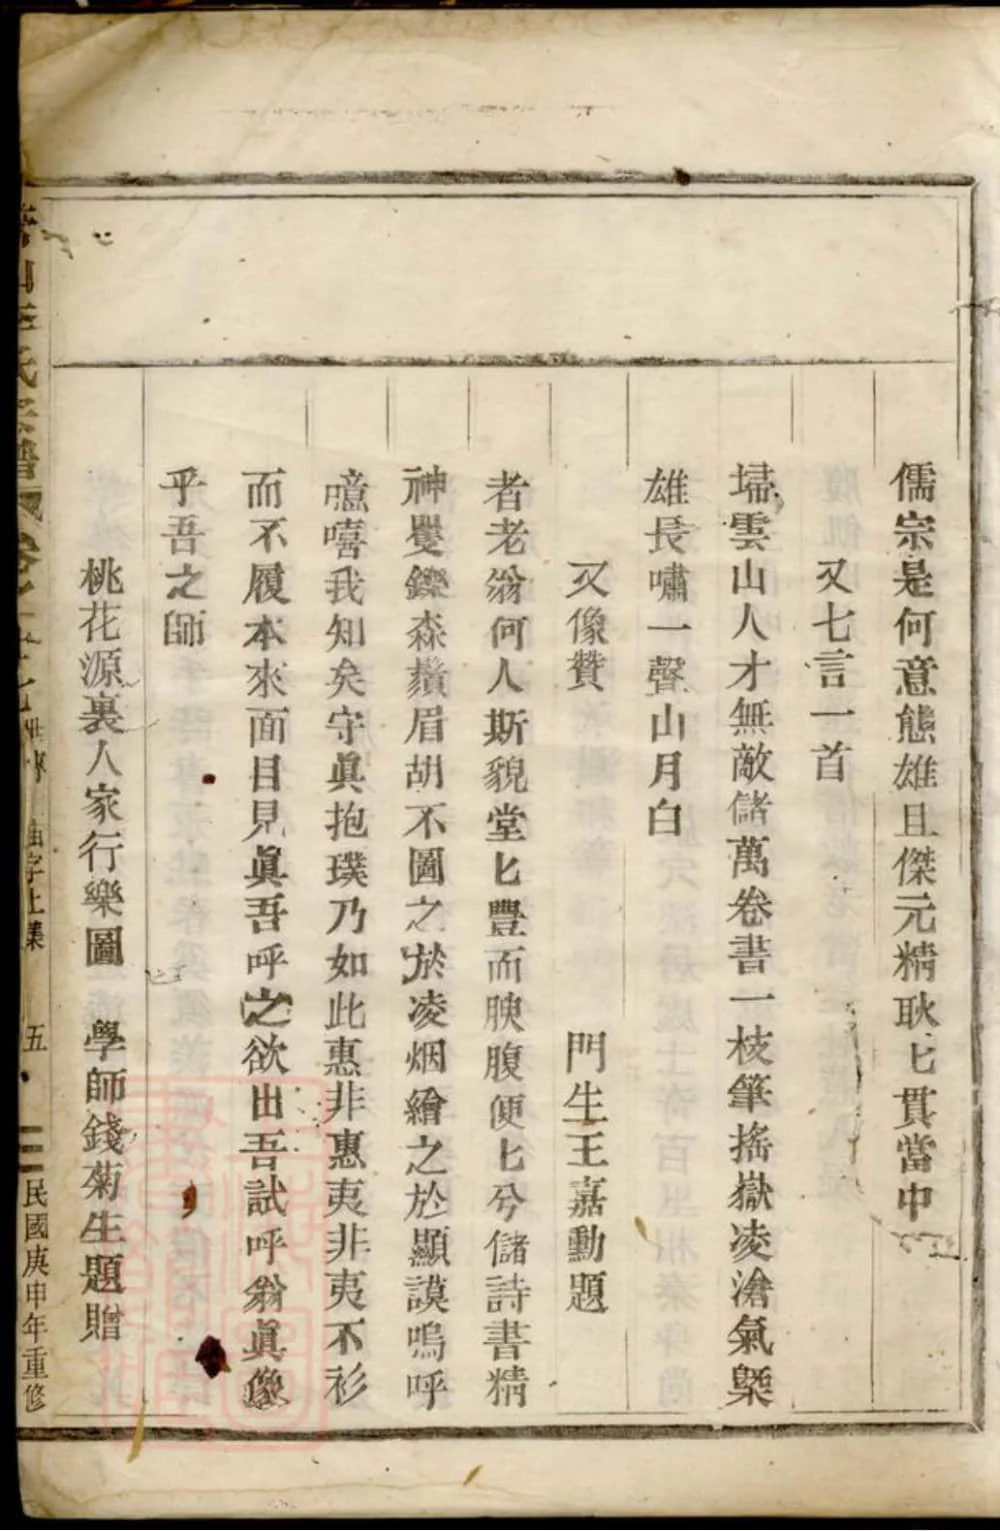 儒宗是何意態雄且傑元精耿匕貫當中
又七言一首
埽雲山人才無敵儲萬卷書一枝筆搖嶽凌滄氣槩
雄長嘯一聲山月白
又像贊　門生王嘉勳題
者老翁何人斯貌堂匕豐而腴腹便匕兮儲詩書精
神矍鑠森鬚眉胡不圖之於凌烟繪之於顯謨嗚呼
噫嘻我知矣守眞抱璞乃如此惠非惠夷非夷不衫
而不履本來面目見眞吾呼之欲出吾試呼翁眞像
乎吾之師
桃花源裏人家行樂圖　學師錢菊生題贈
氏宗譜
五
民國庚申年重修